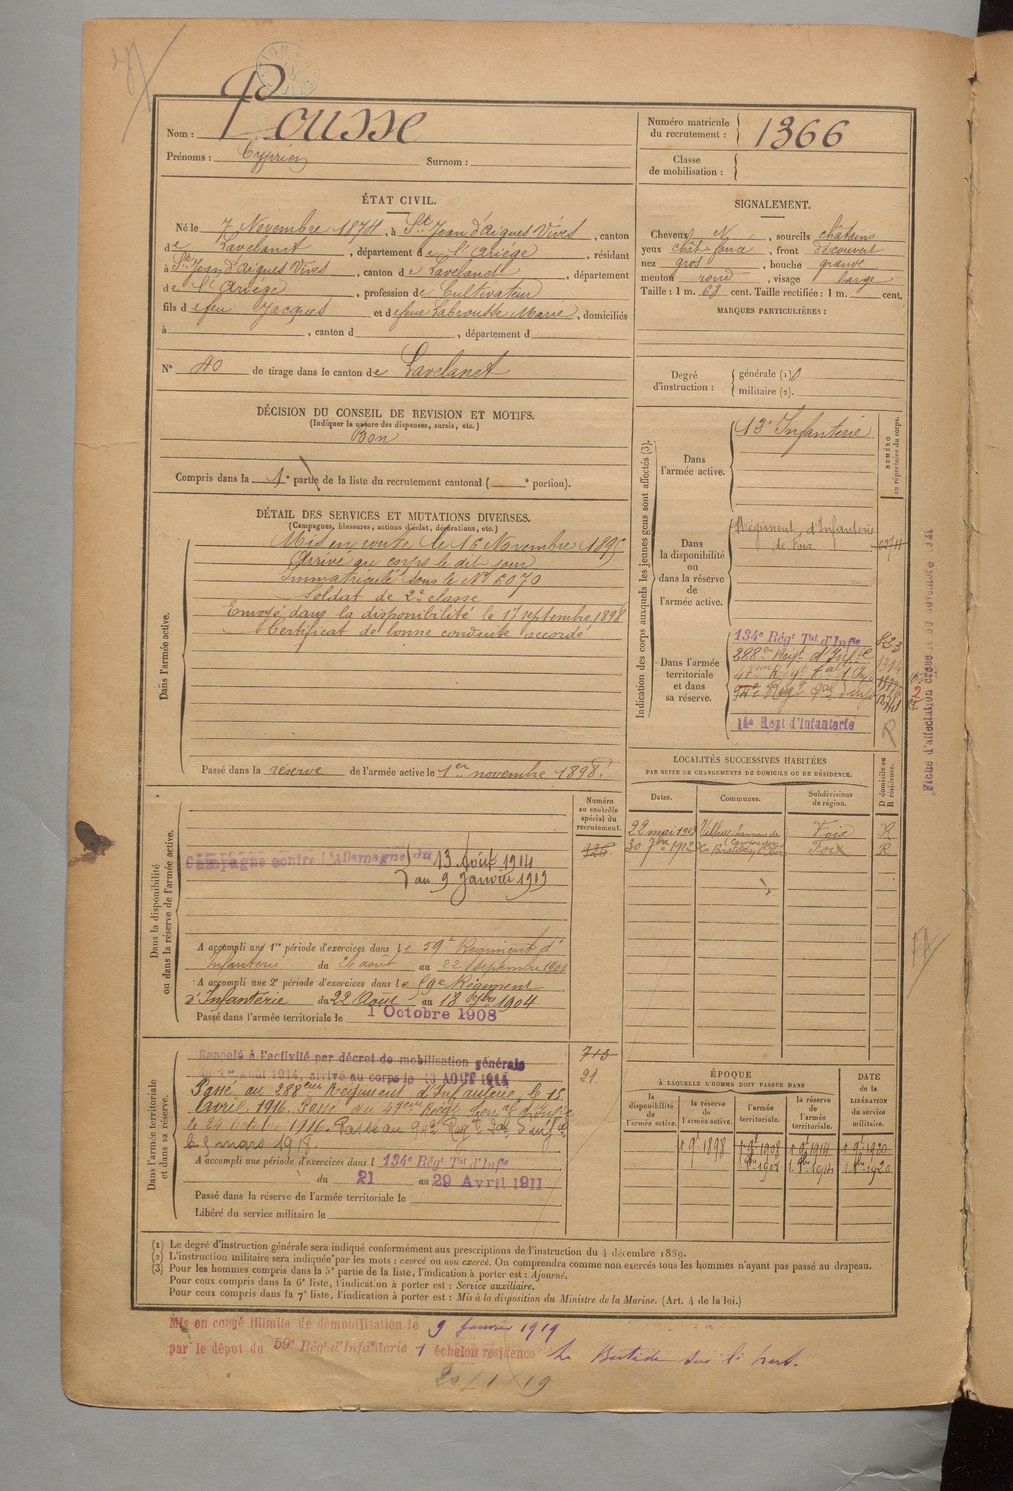 Nom : Pousse
Prénoms : Cyprien Surnom :
Numéro matricule du recrutement : 1366
Classe de mobilisation :
ÉTAT CIVIL.
Né le 7 Novembre 1874, à St Jean d'Aigues Vives, canton
de Lavelanet, département de l'Ariége, résidant
à St Jean d'Aigues Vives, canton de Lavelanet, département
de l'Ariége, profession de Cultivateur
fils de feu Jacques et de feue Labrousse Marie, domiciliés
à , canton d , département d
N° 40 de tirage dans le canton de Lavelanet
SIGNALEMENT.
Cheveux N , sourcils châtains
yeux chât. foncé , front découvert
nez gros , bouche grande
menton rond , visage large
Taille : 1 m. 63 cent. Taille rectifiée : 1 m. cent.
MARQUES PARTICULIÈRES :
Degré d'instruction : générale (1) 0
militaire (2).
DÉCISION DU CONSEIL DE REVISION ET MOTIFS.
(Indiquer la nature des dispenses, sursis, etc.)
Bon
Compris dans la 1e partie de la liste du recrutement cantonal ( e portion).
DÉTAIL DES SERVICES ET MUTATIONS DIVERSES.
(Campagnes, blessures, actions d'éclat, décorations, etc.)
Dans l'armée active.
Mis en route le 16 Novembre 1895
Arrivé au corps le dit jour
Immatriculé sous le N° 6070
Soldat de 2e classe
Envoyé dans la disponibilité le 17 septembre 1898
Certificat de bonne conduite accordé
Passé dans la réserve de l'armée active le 1er novembre 1898.
Indication des corps auxquels les jeunes gens sont affectés (3).
NUMÉRO au répertoire du corps.
Dans l'armée active.
Infanterie
Dans la disponibilité ou dans la réserve de l'armée active.
Régiment d'Infanterie
de Foix
Dans l'armée territoriale et dans sa réserve.
134e Régt Tal d'Infie
288e Régt d'Infie
14e Regt d'Infanterie
R
LOCALITÉS SUCCESSIVES HABITÉES
PAR SUITE DE CHANGEMENTS DE DOMICILE OU DE RÉSIDENCE.
Dates. Communes. Subdivisions de région. D domicile ou R résidence.
22 mai 1903 Foix R
30 1912 Foix R
Dans la disponibilité ou dans la réserve de l'armée active.
Numéro au contrôle spécial du recrutement.
Campagne contre l'Allemagne du 13 Août 1914
au 9 Janvier 1919
A accompli une 1re période d'exercices dans le 59e Régiment d'
Infanterie du 26 août au 22 septembre 1901
A accompli une 2e période d'exercices dans le 59e Régiment
d'Infanterie du 22 Août au 18 7bre 1904
Passé dans l'armée territoriale le 1 Octobre 1908
Dans l'armée territoriale et dans sa réserve.
713
21.
Rappelé à l'activité par décret de mobilisation générale
du 1er Août 1914, arrivé au corps le 13 AOUT 1914
Passé au 288eme Régiment d'Infanterie le 15
avril 1916. Passé au
le 24 Octobre 1916. Passé au
le 8 mars 1918
A accompli une période d'exercices dans l 134e Régt Tal d'Infie
du 21 au 29 Avril 1911
Passé dans la réserve de l'armée territoriale le
Libéré du service militaire le
ÉPOQUE
À LAQUELLE L'HOMME DOIT PASSER DANS
la disponibilité de l'armée active. la réserve de l'armée active. l'armée territoriale. la réserve de l'armée territoriale.
DATE de la LIBÉRATION du service militaire.
1 9e 1898 1 9e 1908 1 9e 1914 1 9e 1920
Fiche d'affectation créée le 30 novembre
(1) Le degré d'instruction générale sera indiqué conformément aux prescriptions de l'instruction du 4 décembre 1889.
(2) L'instruction militaire sera indiquée par les mots : exercé ou non exercé. On comprendra comme non exercés tous les hommes n'ayant pas passé au drapeau.
(3) Pour les hommes compris dans la 5e partie de la liste, l'indication à porter est : Ajourné.
Pour ceux compris dans la 6e liste, l'indication à porter est : Service auxiliaire.
Pour ceux compris dans la 7e liste, l'indication à porter est : Mis à la disposition du Ministre de la Marine. (Art. 4 de la loi.)
Mis en congé illimité de démobilisation le 9 Janvier 1919
par le dépôt du 59e Régt d'Infanterie 1 échelon résidence La Bastide sur l'Hers.
20/1/19